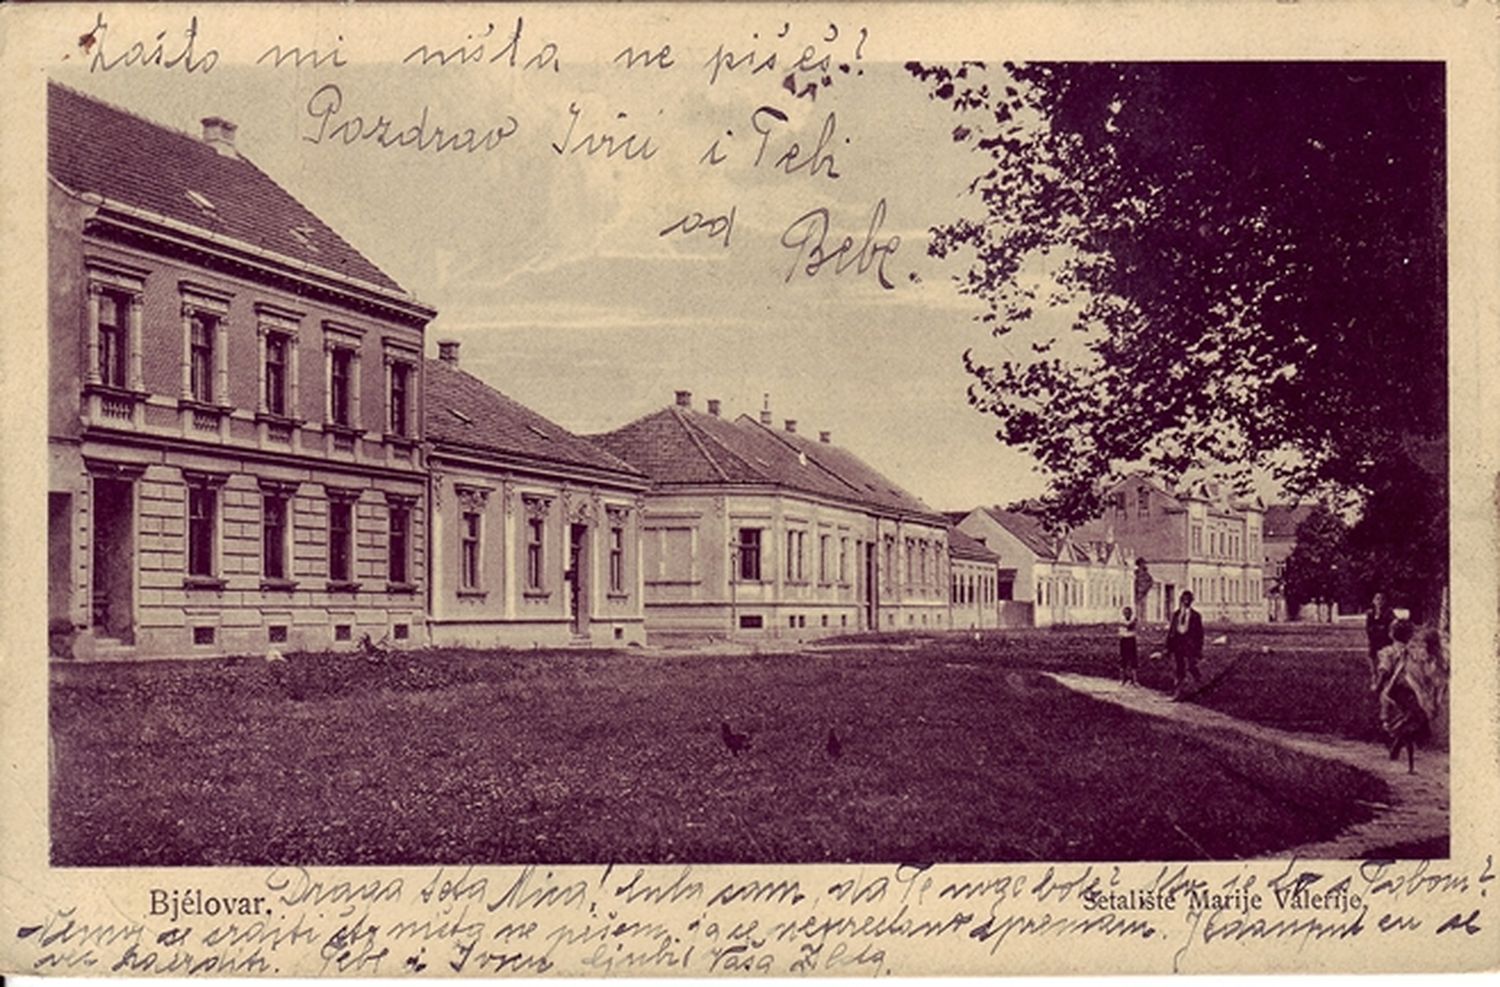 Zašto mi ništa ne pišeš?
Pozdrav Ivici i Tebi
od Bebe.
Bjélovar.
Šetalište Marije Valerije.
Draga teta Mica! čula sam, da Te noge bole? Što je to s Tobom?
Nemoj se srditi što ništa ne pišem, ja se neprestano spremam. Jedanput ću se
već
Tebe i Ivicu ljubi Vaša